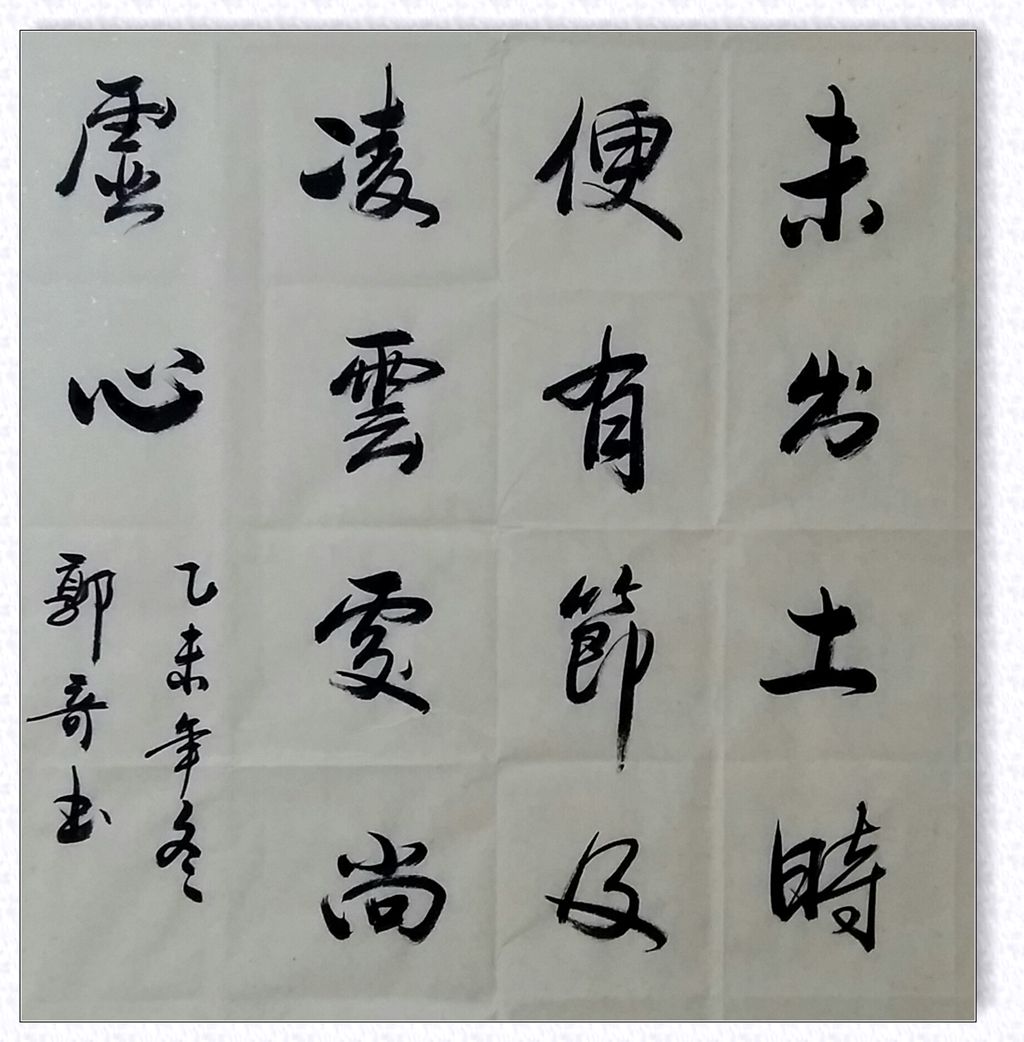 未出土時
便有節及
凌雲處尚
虛心
乙未年冬
郭奇书